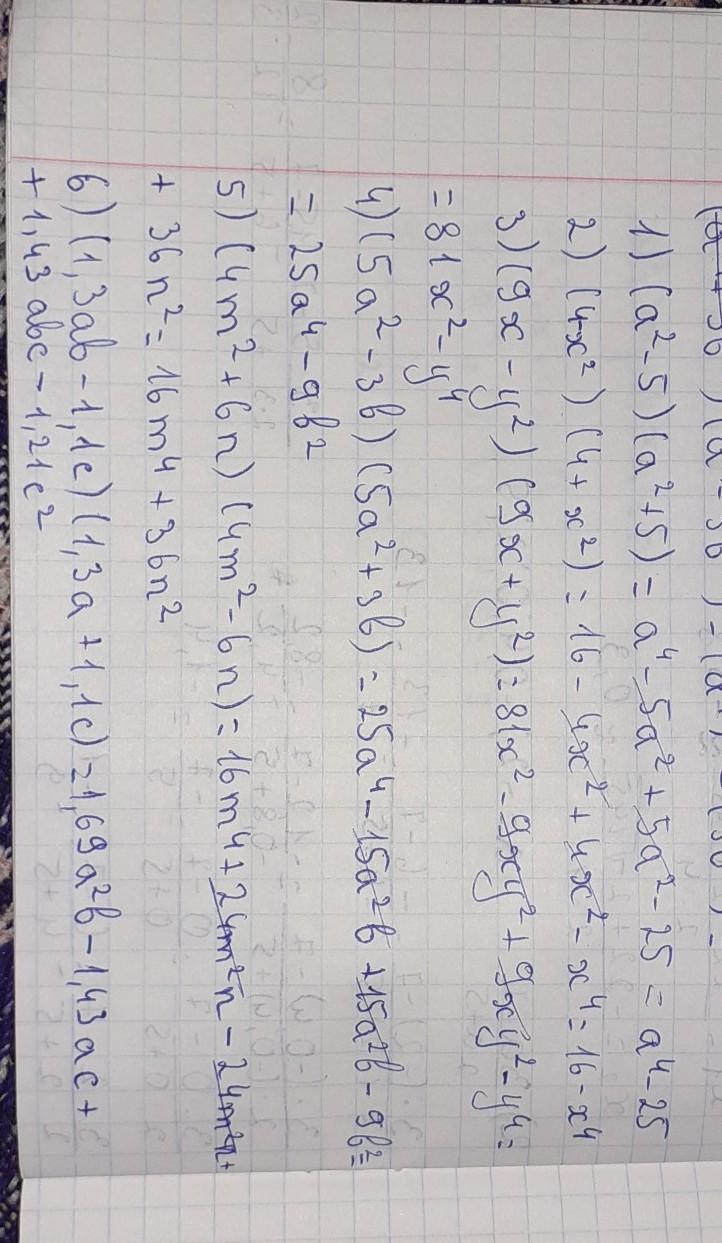 1) (a²-5)(a²+5) = a⁴-5a²+5a²-25 = a⁴-25
2) (4-x²)(4+x²) = 16-4x²+4x²-x⁴ = 16-x⁴
3) (9x-y²)(9x+y²) = 81x²-9xy²+9xy²-y⁴ =
= 81x²-y⁴
4) (5a²-3b)(5a²+3b) = 25a⁴-15a²b+15a²b-9b² =
= 25a⁴-9b²
5) (4m²+6n)(4m²-6n) = 16m⁴+24m²n-24m²n+
+ 36n² = 16m⁴+36n²
6) (1,3ab-1,1c)(1,3a+1,1c) = 1,69a²b-1,43ac+
+ 1,43abc-1,21c²